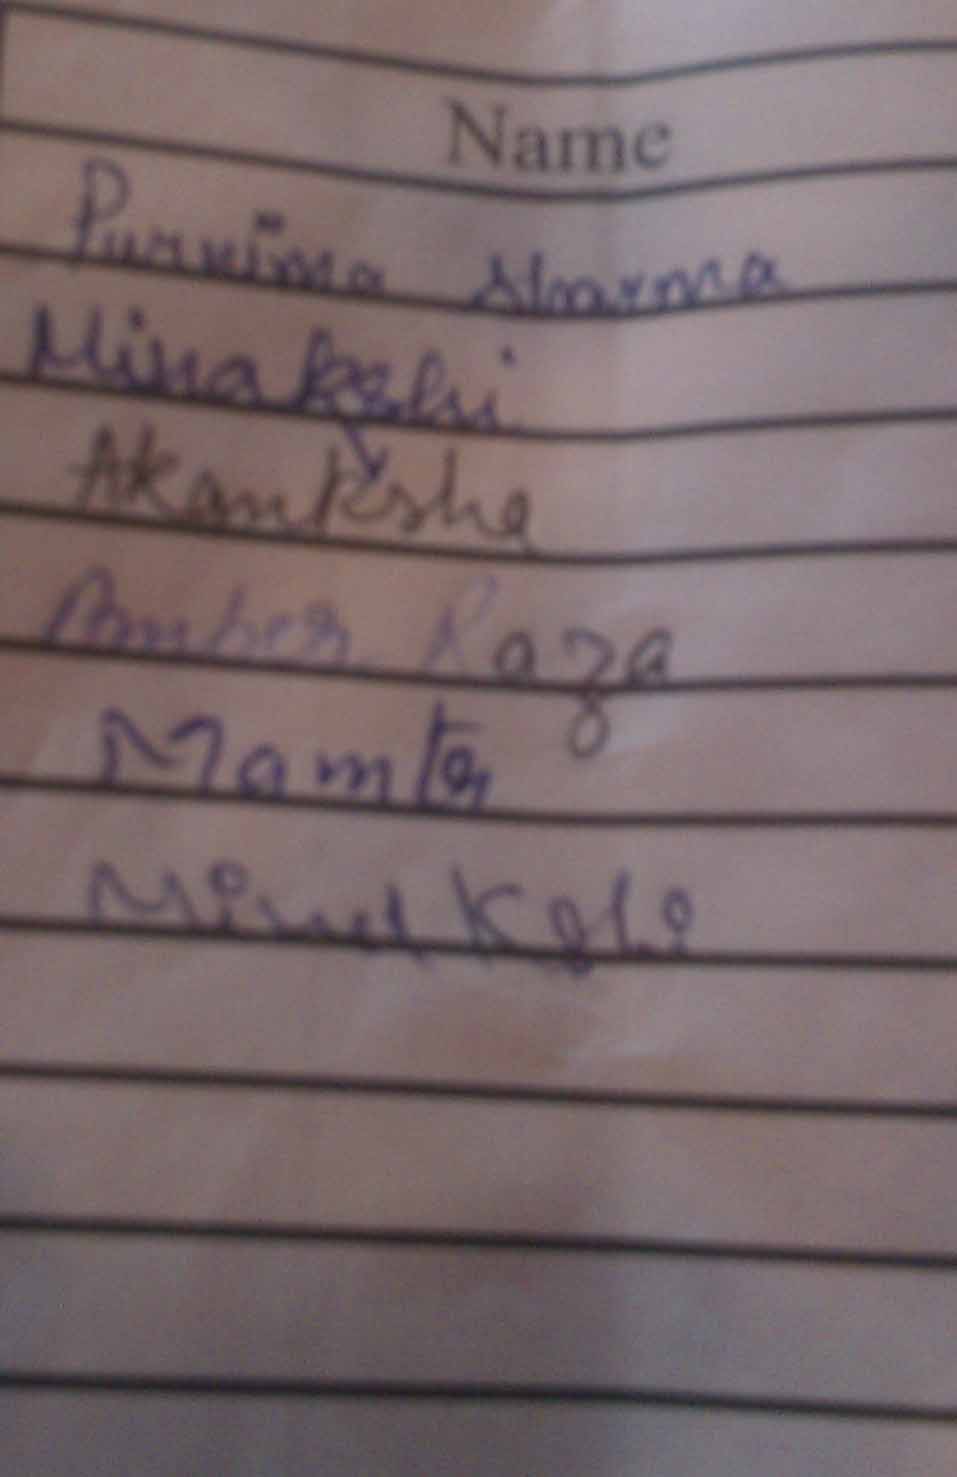 Name
Purnima Sharma
Minakshi
Akanksha
Amber Raza
Mamta